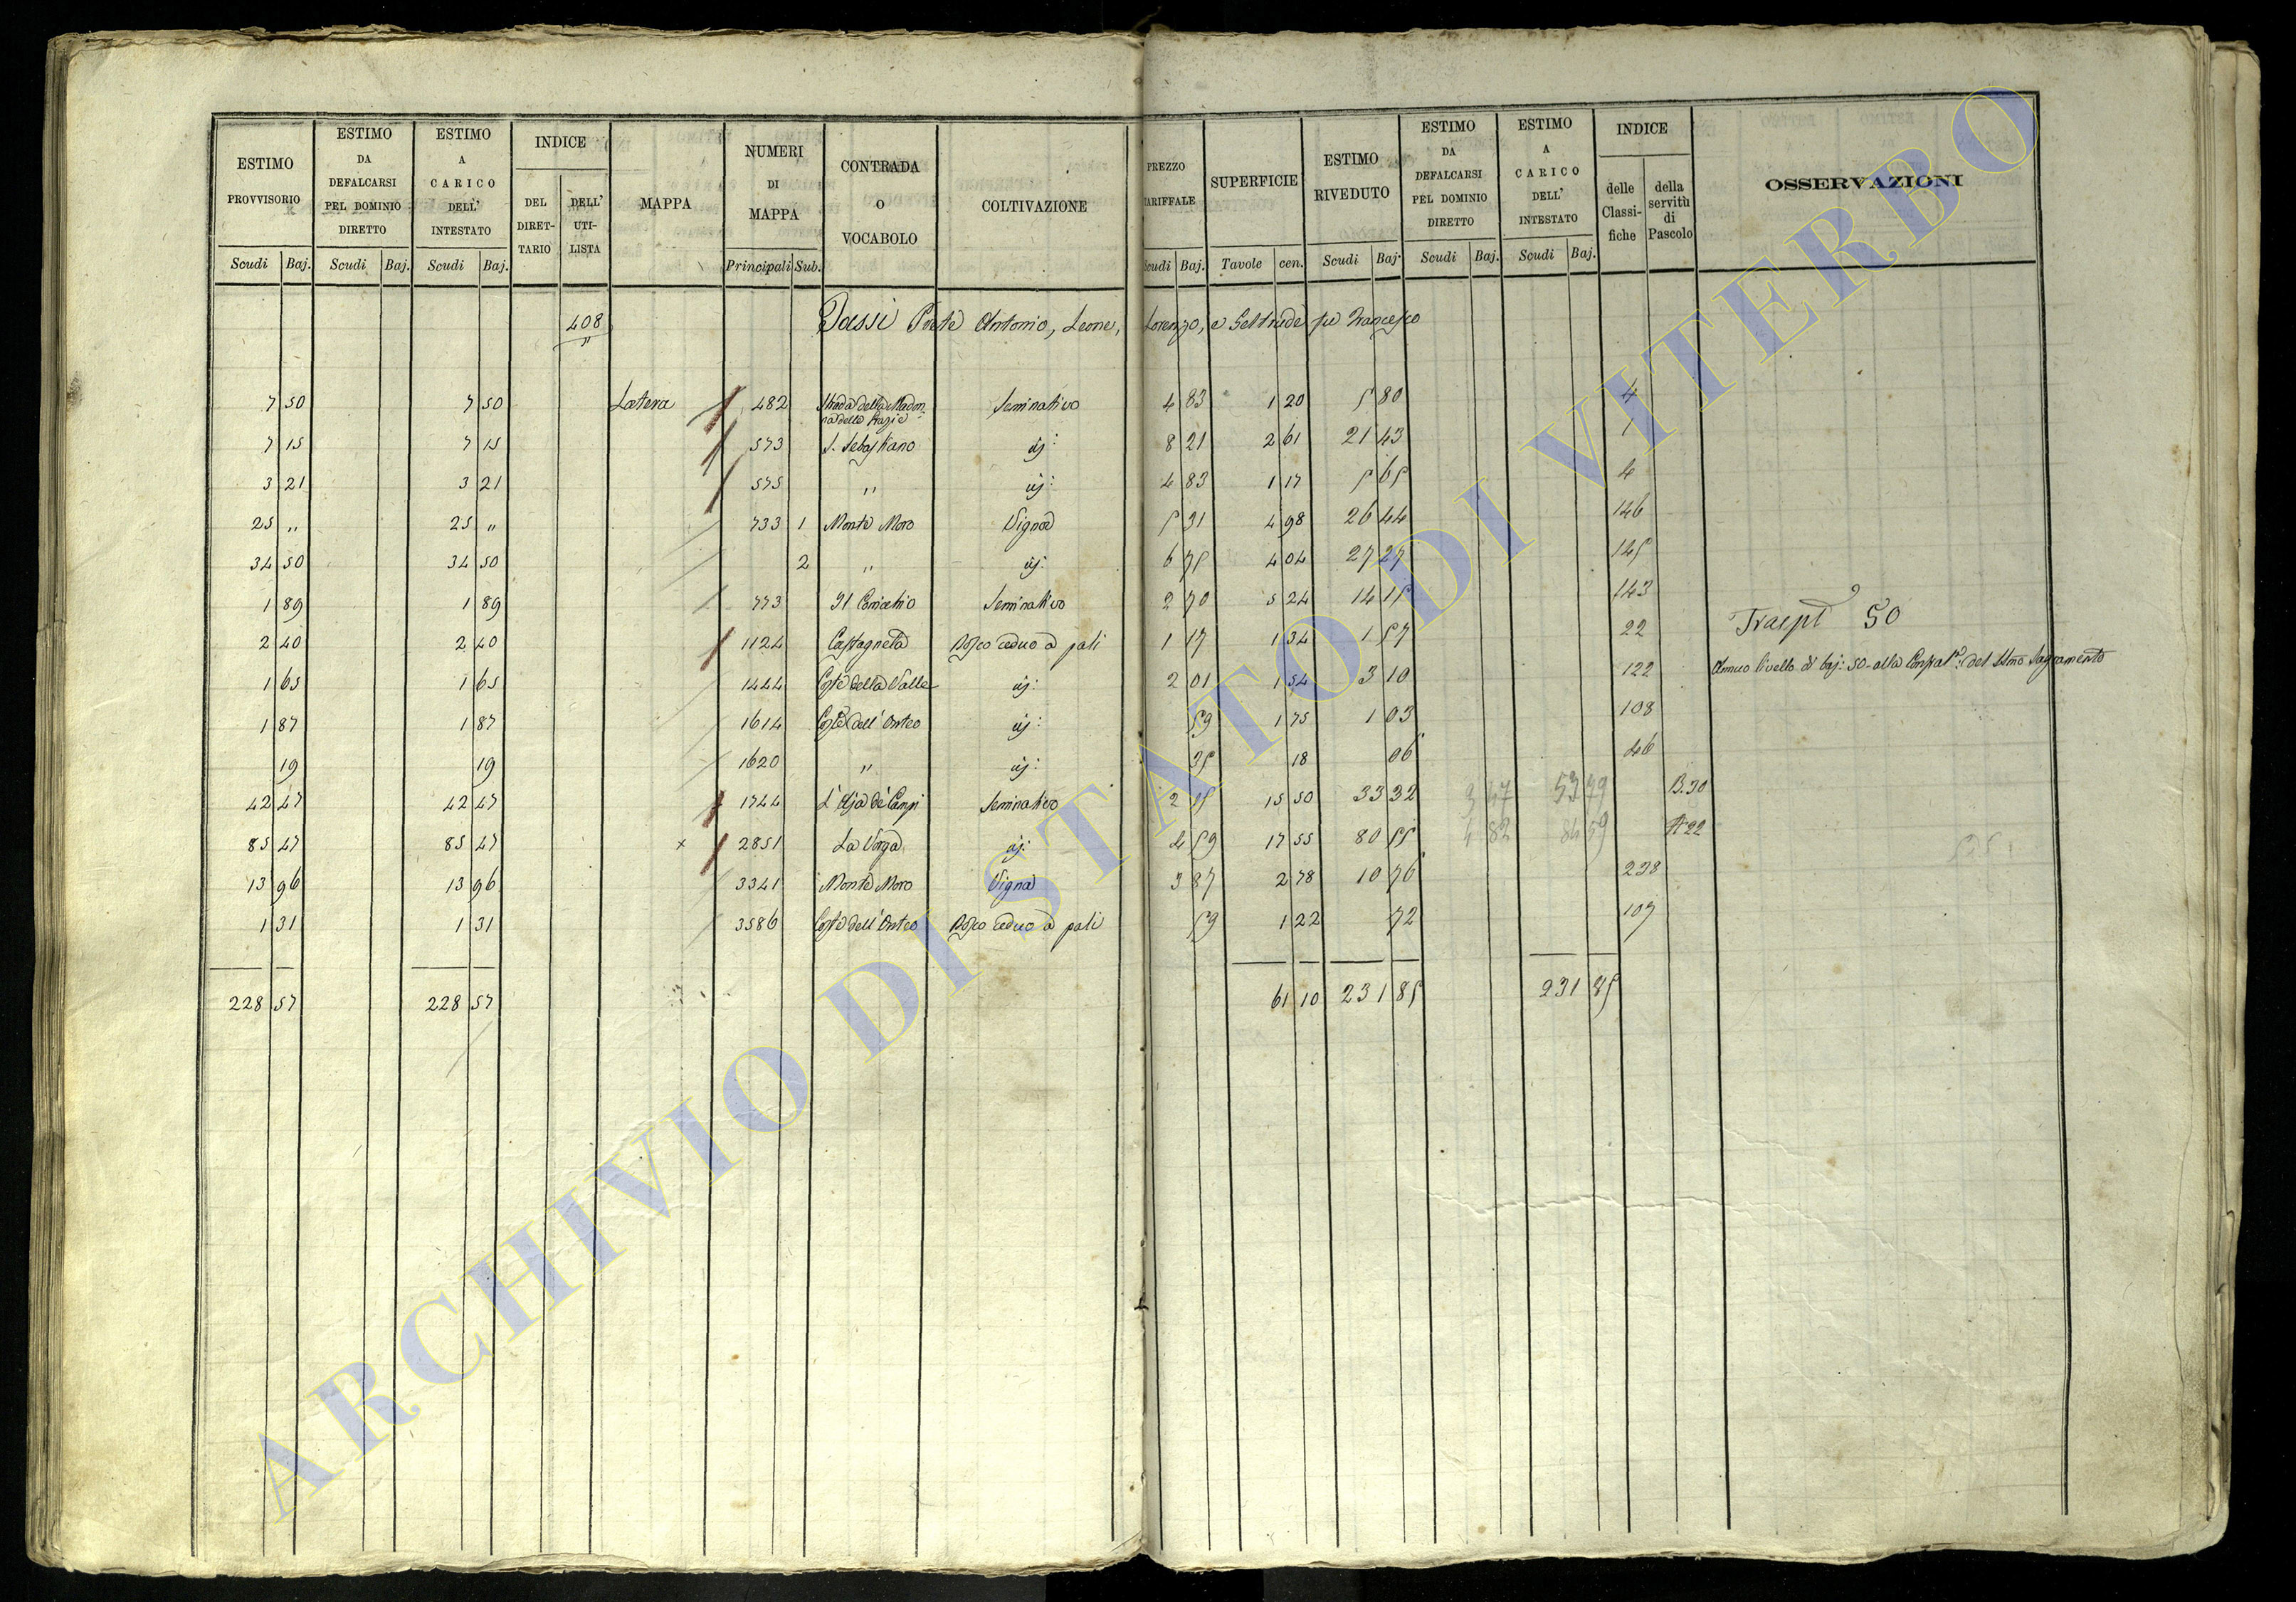 ESTIMO PROVVISORIO
ESTIMO DA DEFALCARSI PEL DOMINIO DIRETTO
ESTIMO A CARICO DELL' INTESTATO
INDICE
DEL DIRET-TARIO DELL' UTI-LISTA
MAPPA
NUMERI DI MAPPA
CONTRADA O VOCABOLO
COLTIVAZIONE
PREZZO TARIFFALE
SUPERFICIE
ESTIMO RIVEDUTO
ESTIMO DA DEFALCARSI PEL DOMINIO DIRETTO
ESTIMO A CARICO DELL' INTESTATO
INDICE
delle Classi-fiche della servitù di Pascolo
OSSERVAZIONI
Scudi Baj. Scudi Baj. Scudi Baj. Principali Sub. Scudi Baj. Tavole cen. Scudi Baj. Scudi Baj. Scudi Baj.
408 Antonio, Leone, Lorenzo, e Geltrude fu Francesco
7 50 7 50 Latera 482 Strada della Madon- Seminativo 4 83 1 20 5 80 4
na delle Grazie
7 15 7 15 573 S. Sebastiano id: 8 21 2 61 21 43 1
3 21 3 21 575 " id: 4 83 1 17 5 65 4
25 " 25 " 733 1 Monte Moro Vigna 5 31 4 98 26 44 146
34 50 34 50 2 " id: 6 75 4 04 27 27 145
1 89 1 89 773 Il Seminativo 2 70 5 24 14 15 143
2 40 2 40 1124 Castagneta Bosco ceduo a pali 1 17 1 34 1 57 22 50
1 65 1 65 1444 Coste della Valle id: 2 01 1 54 3 10 122 Annuo livello di baj: 50 alla del Ssmo Sagramento
1 87 1 87 1614 Coste dell' id: 59 1 75 1 03 108
19 19 1620 " id: 35 18 06 46
42 47 42 47 1744 L' de' Campi Seminativo 2 15 15 50 33 32 53 79 B.30
85 47 85 47 × 2851 La id: 4 59 17 55 80 55 4 82 84 59 22
13 96 13 96 3341 Monte Moro Vigna 3 87 2 78 10 76 238
1 31 1 31 3586 Coste dell' Bosco ceduo a pali 59 1 22 72 107
228 57 228 57 61 10 231 85 231 85
ARCHIVIO DI STATO DI VITERBO